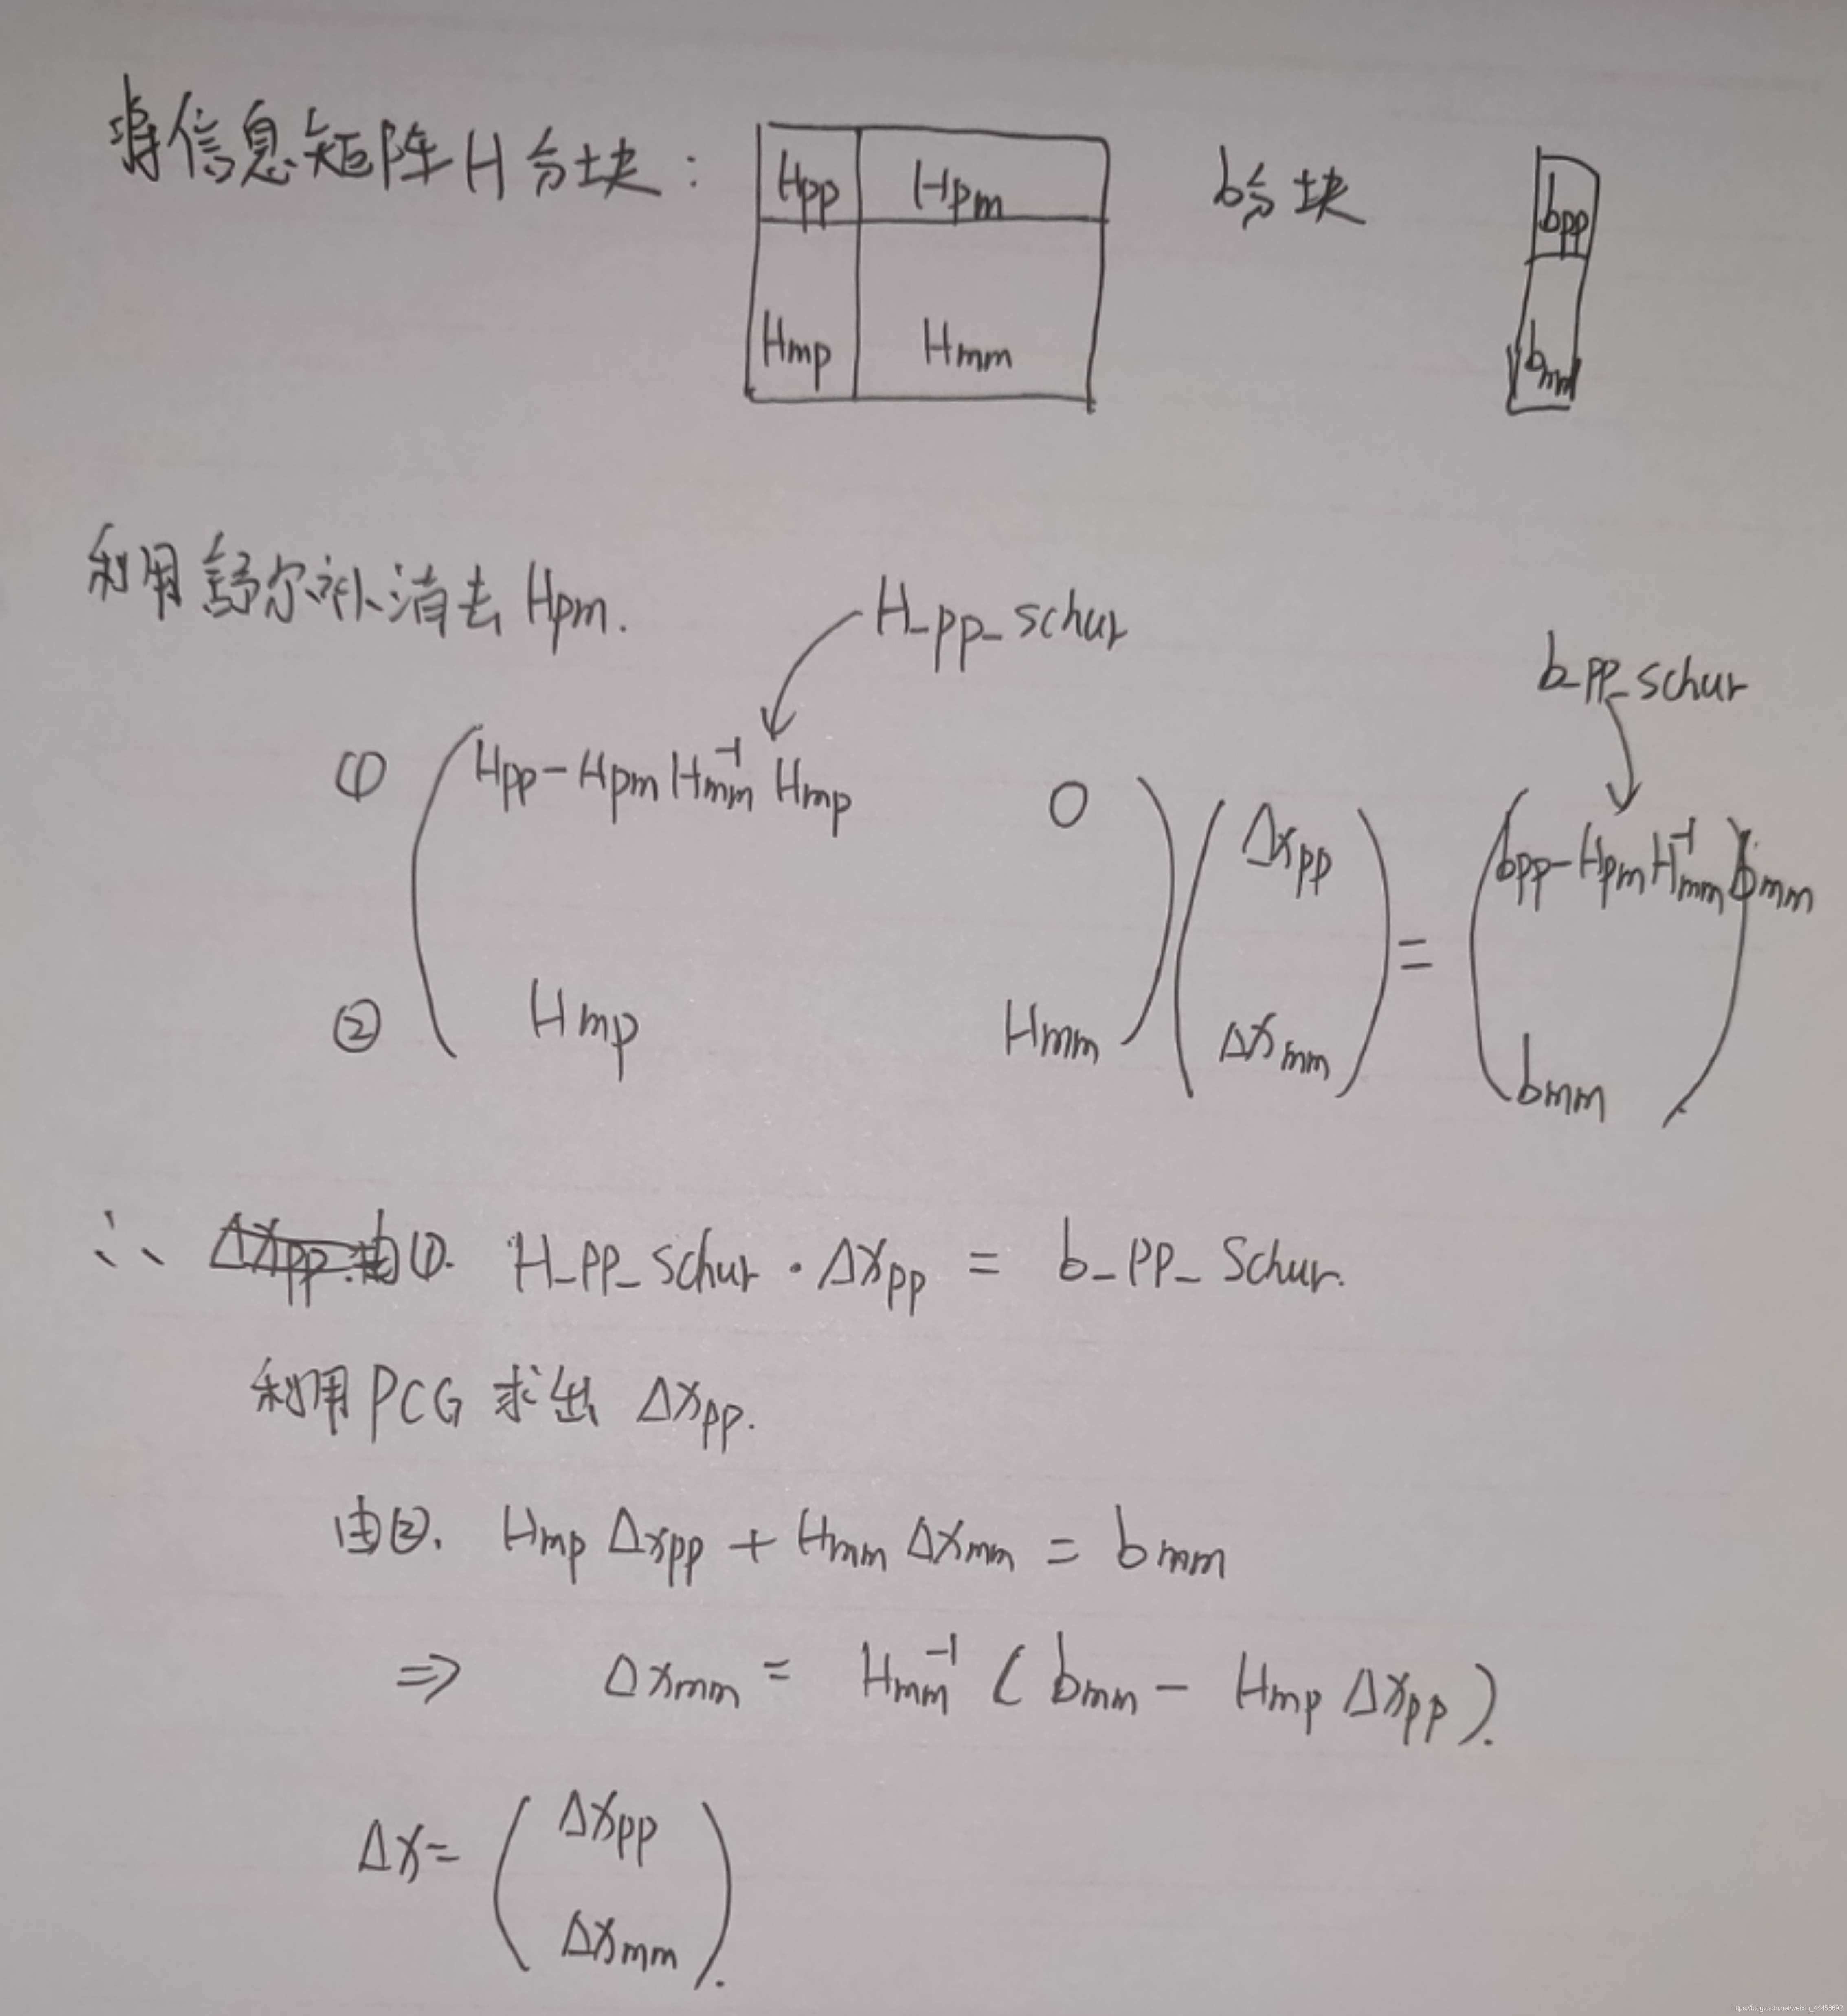 将信息矩阵H分块: Hpp Hpm b分块 bpp
Hmp Hmm bmm
利用舒尔补消去 Hpm. H_pp_schur
b_pp_schur
① Hpp-HpmHmm⁻¹Hmp 0 Δxpp bpp-HpmHmm⁻¹bmm
=
② Hmp Hmm Δxmm bmm
∴ Δxpp 由①. H_pp_schur · Δxpp = b_pp_Schur.
利用PCG 求出 Δxpp.
由②. Hmp Δxpp + Hmm Δxmm = bmm
⇒ Δxmm = Hmm⁻¹ ( bmm - Hmp Δxpp ).
Δx= ( Δxpp
Δxmm ).